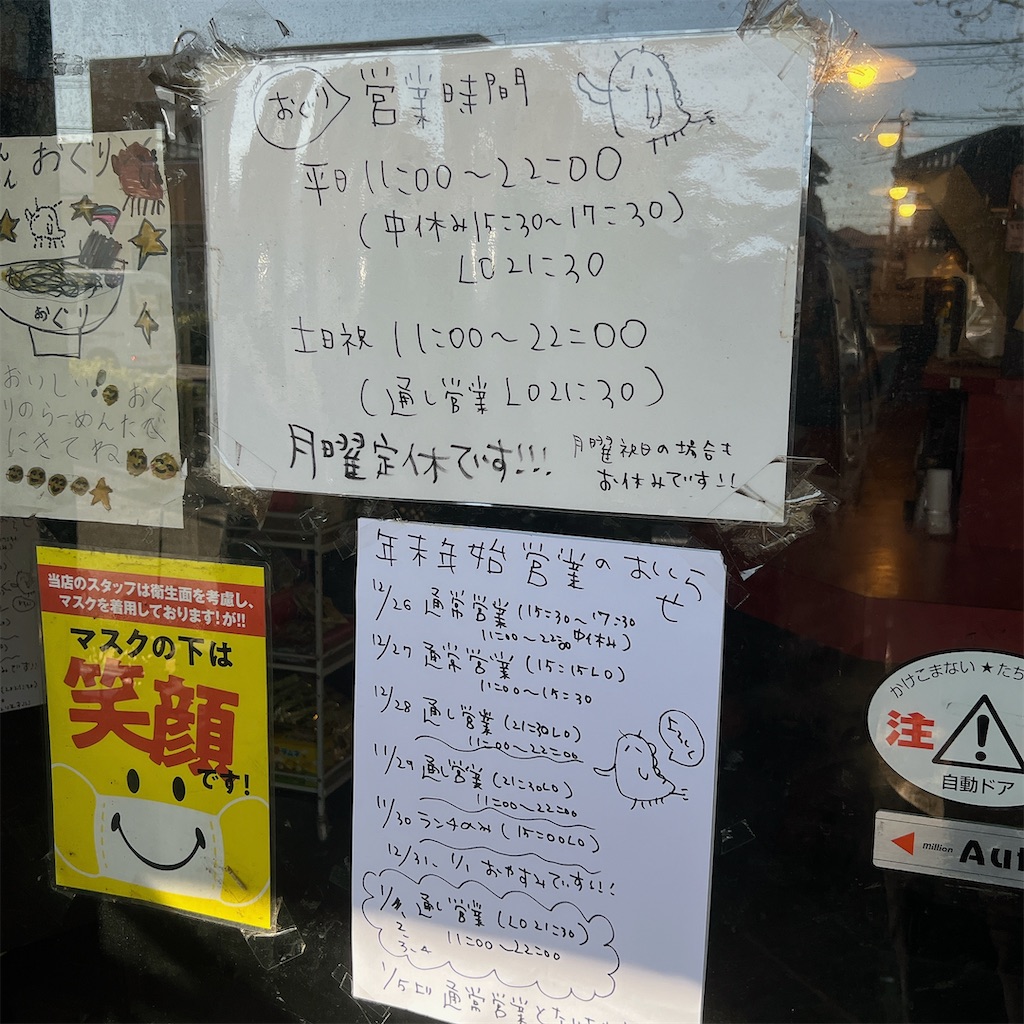 おぐり 営業時間
平日 11:00〜22:00
(中休み15:30〜17:30)
LO21:30
土日祝 11:00〜22:00
(通し営業 LO21:30)
月曜定休です!!!
月曜祝日の場合も
お休みです!!
おぐり
おぐり
おいしい!おぐ
りのらーめんたべ
にきてね
当店のスタッフは衛生面を考慮し、
マスクを着用しております!が!!
マスクの下は
笑顔
です!
年末年始営業のおしらせ
12/26 通常営業(15:30〜17:30
11:00〜22:00 中休み)
12/27 通常営業(15:15LO)
11:00〜15:30
12/28 通し営業(21:30LO)
11:00〜22:00
11/29 通し営業(21:30LO)
11:00〜22:00
11/30 ランチのみ(15:00LO)
12/31、1/1 おやすみです!!!
1/2 3、4 通し営業(LO21:30)
11:00〜22:00
1/5より 通常営業と
かけこまない★たち
注
自動ドア
million